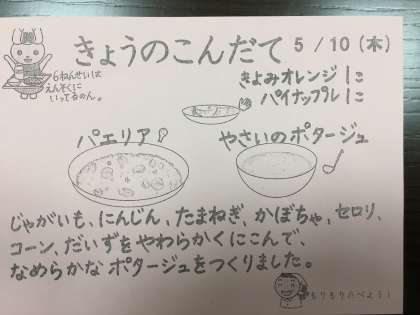 きょうのこんだて 5/10(木)
6ねんせいは
えんそくに
いってるのん。
きよみオレンジ1こ
パイナップル1こ
パエリア
やさいのポタージュ
じゃがいも、にんじん、たまねぎ、かぼちゃ、セロリ、
コーン、だいずをやわらかくにこんで、
なめらかなポタージュをつくりました。
もりもりたべよう!